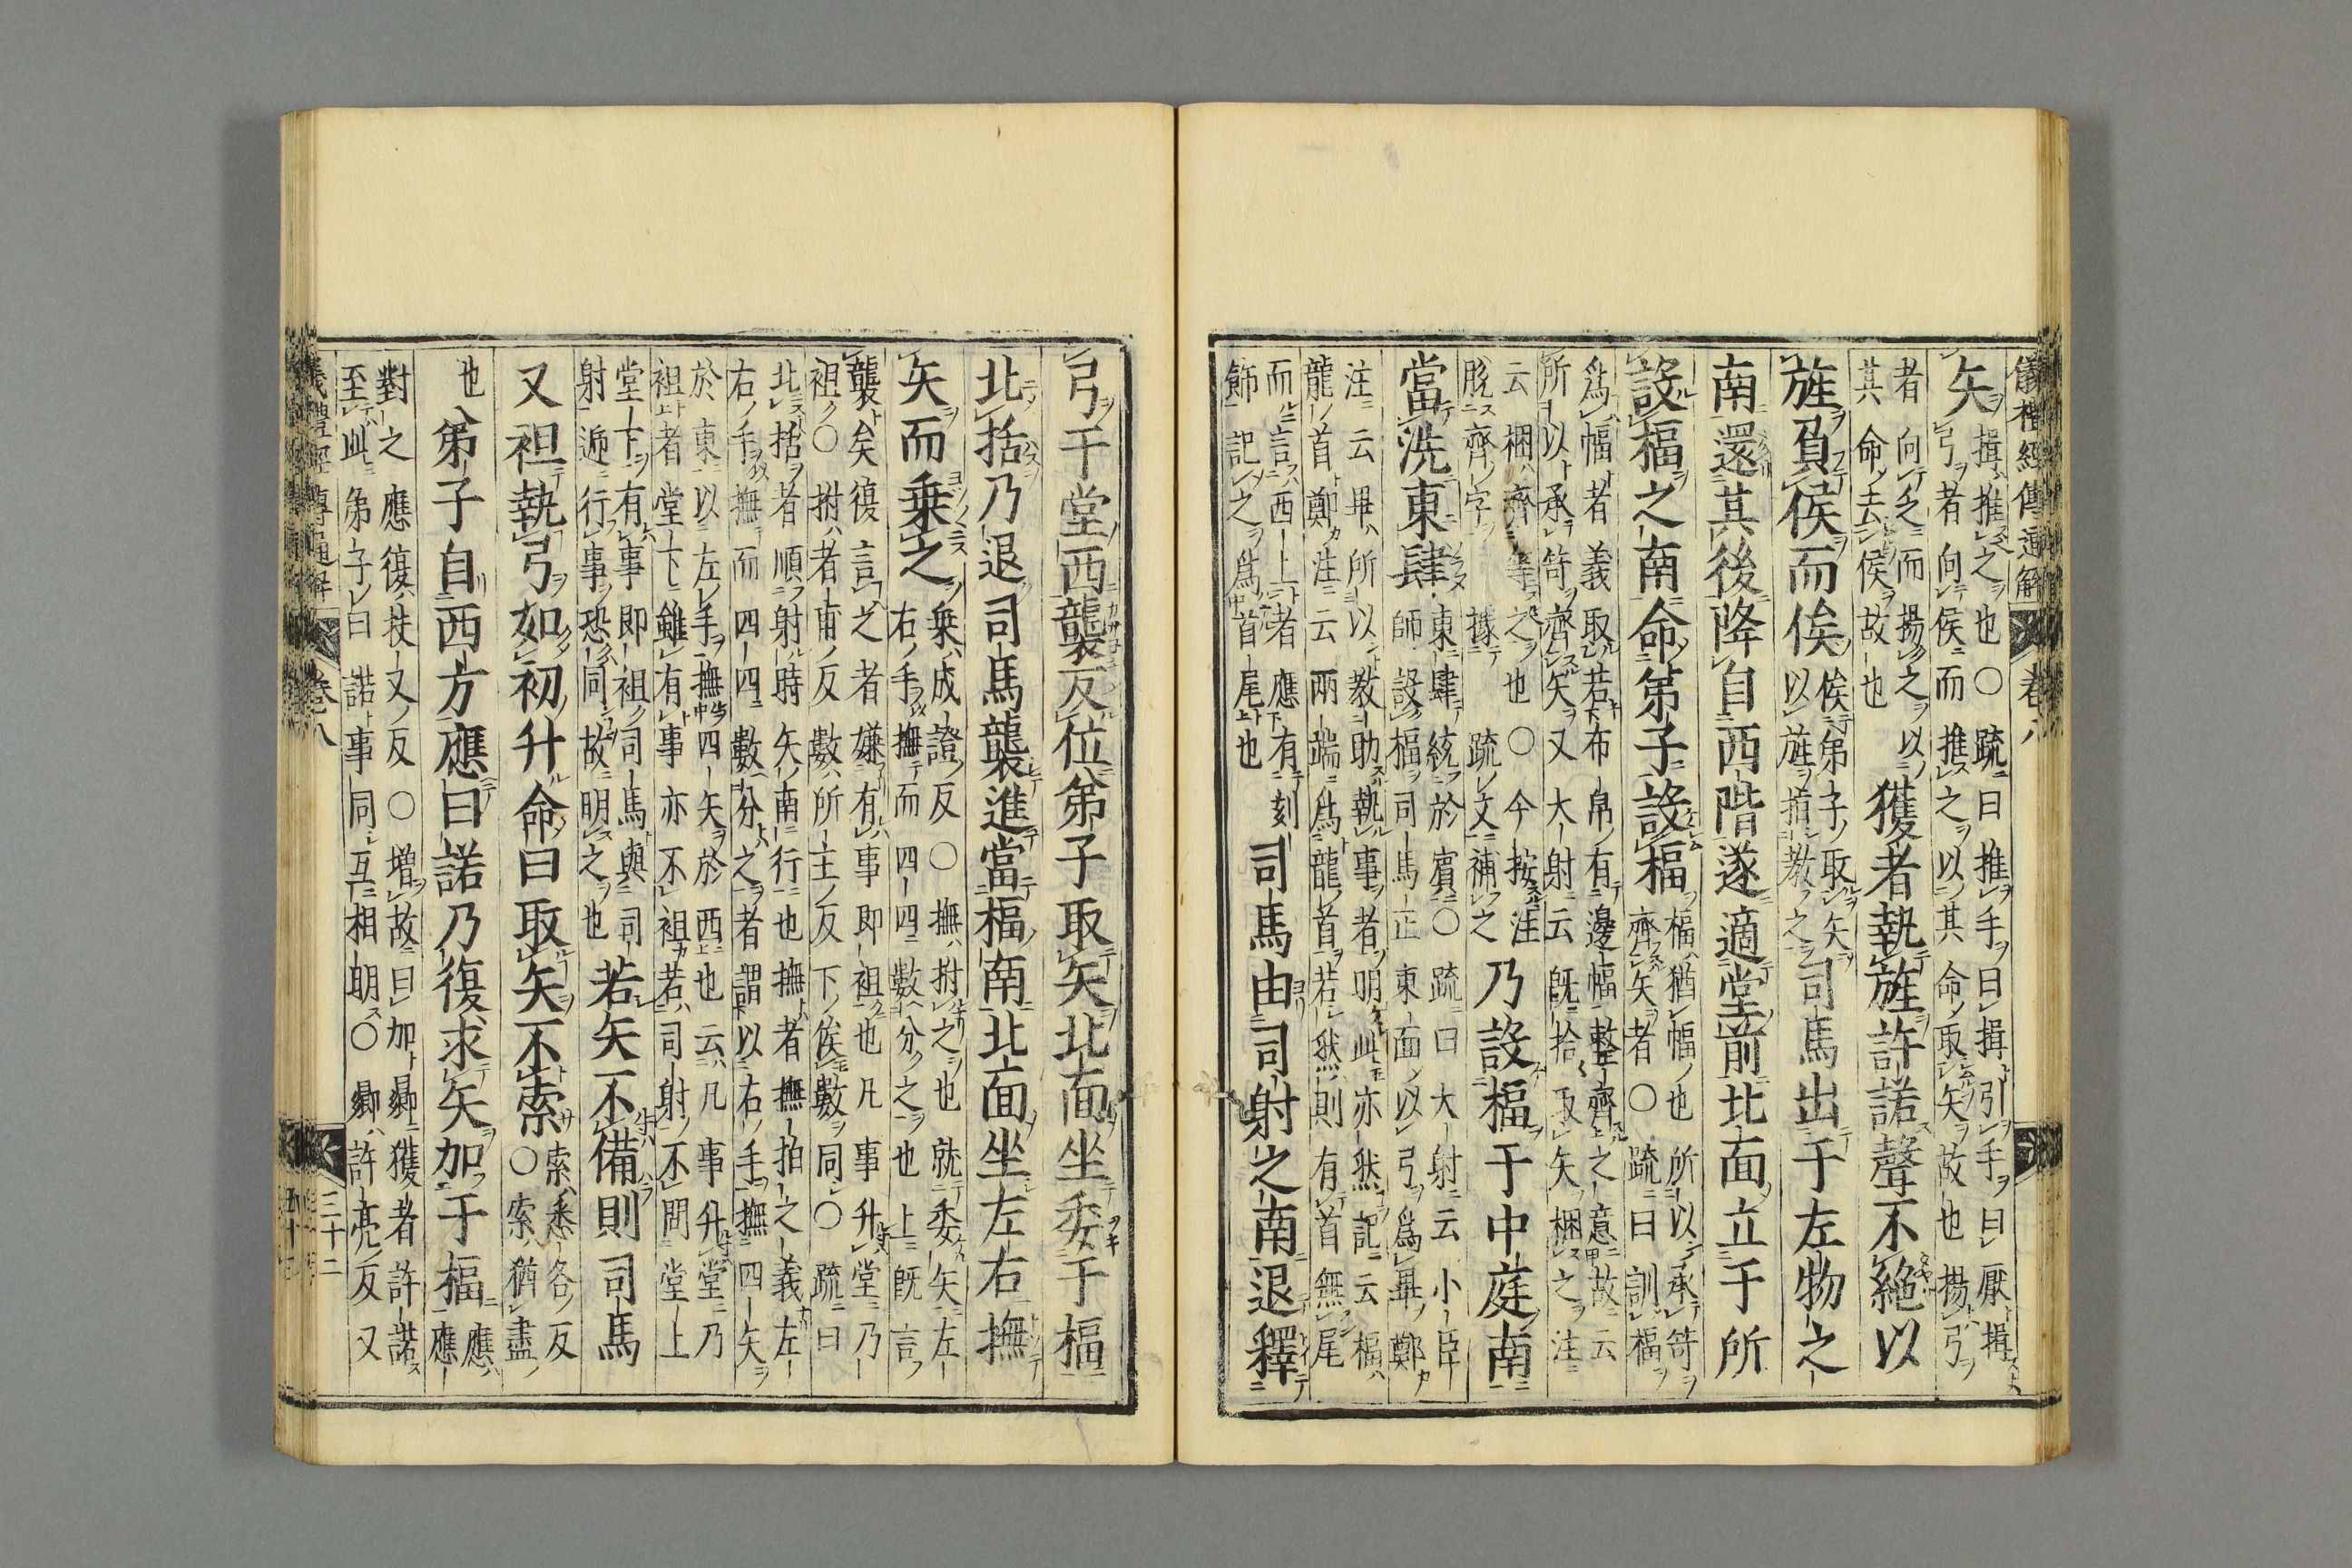 儀禮經傳通解 卷八
矢揖推之也○疏曰推手曰揖引手曰厭揖
弓者向侯而推之以其命取矢故也揚弓
者向乏而揚之以
其命去侯故也獲者執旌許諾聲不絕以
旌負侯而俟俟弟子取矢
以旌指教之司馬出于左物之
南還其後降自西階遂適堂前北面立于所
設楅之南命弟子設楅楅猶幅也所以承笴
齊矢者○疏曰訓楅
爲幅者義取若布帛有邊幅整齊之意故云
所以承笴齊矢又大射云既拾取矢梱之注
云梱齊等之也○今按注
脫齊字據疏文補之乃設楅于中庭南
當洗東肆東肆統於賓○疏曰大射云小臣
師設楅司馬正東面以弓爲畢鄭
注云畢所以教助執事者明此亦然記云楅
龍首鄭注云兩端爲龍首若然則有首無尾
而言西上者應有刻
飾記之爲首尾也司馬由司射之南退釋
弓于堂西襲反位弟子取矢北面坐委于楅
北括乃退司馬襲進當楅南北面坐左右撫
矢而乗之乗成證反○撫拊之也就委矢左
右手撫而四四數分之也上既言
襲矣復言之者嫌有事即袒也凡事升堂乃
袒○拊者甫反數所主反下俟數同○疏曰
北括者順射時矢南行也撫者撫拍之義左
右手撫而四四數分之者謂以右手撫四矢
於東以左手撫四矢於西也云凡事升堂乃
袒者堂下雖有事亦不袒若司射不問堂上
堂下有事即袒司馬與司
射遞行事恐同故明之也若矢不備則司馬
又袒執弓如初升命曰取矢不索索悉各反
○索猶盡
也弟子自西方應曰諾乃復求矢加于楅應應
對之應復扶又反○增故曰加曏獲者許諾
至此弟子曰諾事同互相明○曏許亮反又
儀禮經傳通解 卷八 三十二